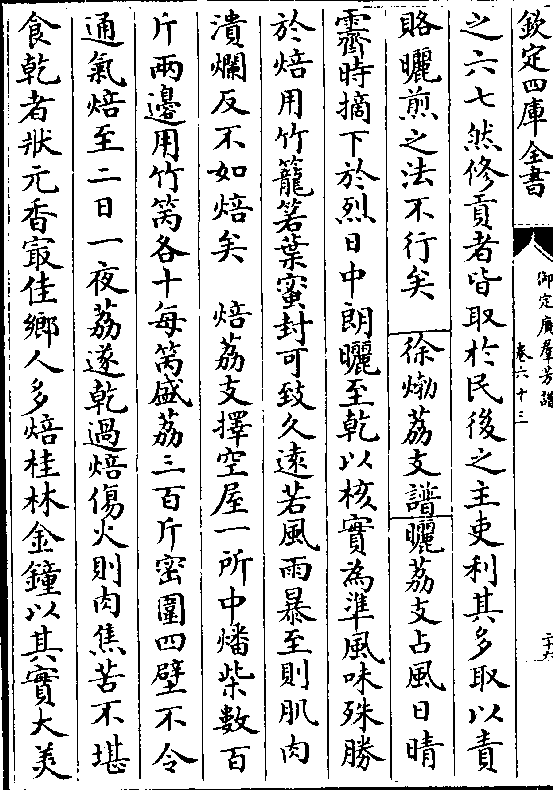 欽定四庫全書
御定廣羣芳譜
卷六十三
二十六
之六七然修貢者皆取於民後之主吏利其多取以責
賂曬煎之法不行矣　徐㶿荔支譜曬荔支占風日晴
霽時摘下於烈日中朗曬至乾以核實為準風味殊勝
於焙用竹籠箬葉蜜封可致久遠若風雨暴至則肌肉
潰爛反不如焙矣　焙荔支擇空屋一所中燔柴數百
斤兩邊用竹䓖各十每䓖盛荔三百斤密圍四壁不令
通氣焙至二日一夜荔遂乾過焙傷火則肉焦苦不堪
食乾者狀元香冣佳鄉人多焙桂林金鐘以其實大美